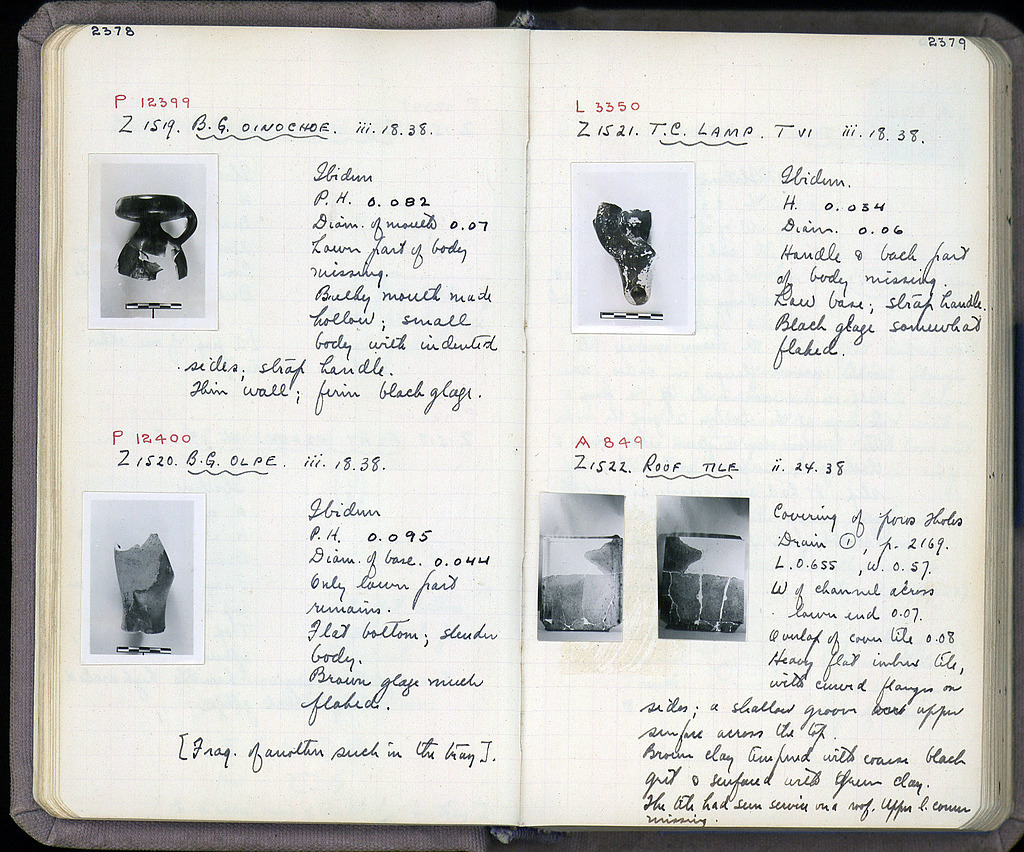 2378
P 12399
Z 1519. B.G. OINOCHOE. iii.18.38.
Ibidem
P.H. 0.082
Diam. of mouth 0.07
Lower part of body
missing.
Bulky mouth made
hollow; small
body with indented
sides; strap handle.
Thin wall; firm black glaze.
P 12400
Z 1520. B.G. OLPE. iii.18.38.
Ibidem
P.H. 0.095
Diam. of base. 0.044
Only lower part
remains.
Flat bottom; slender
body.
Brown glaze much
flaked.
[Frag. of another such in the tray].
2379
L 3350
Z 1521. T.C. LAMP. T VI iii.18.38.
Ibidem.
H. 0.034
Diam. 0.06
Handle & back part
of body missing.
Low base; strap handle.
Black glaze somewhat
flaked.
A 849
Z 1522. ROOF TILE ii.24.38
Covering of poros Tholos
Drain ①, p. 2169.
L. 0.655, W. 0.57.
W of channel across
lower end 0.07.
Overlap of cover tile 0.08
Heavy flat imbrex tile,
with curved flanges on
sides; a shallow groove upper
surface across the top.
Brown clay tempered with coarse black
grit & surfaced with clay.
The tile had seen service on a roof. Upper l. corner
missing.